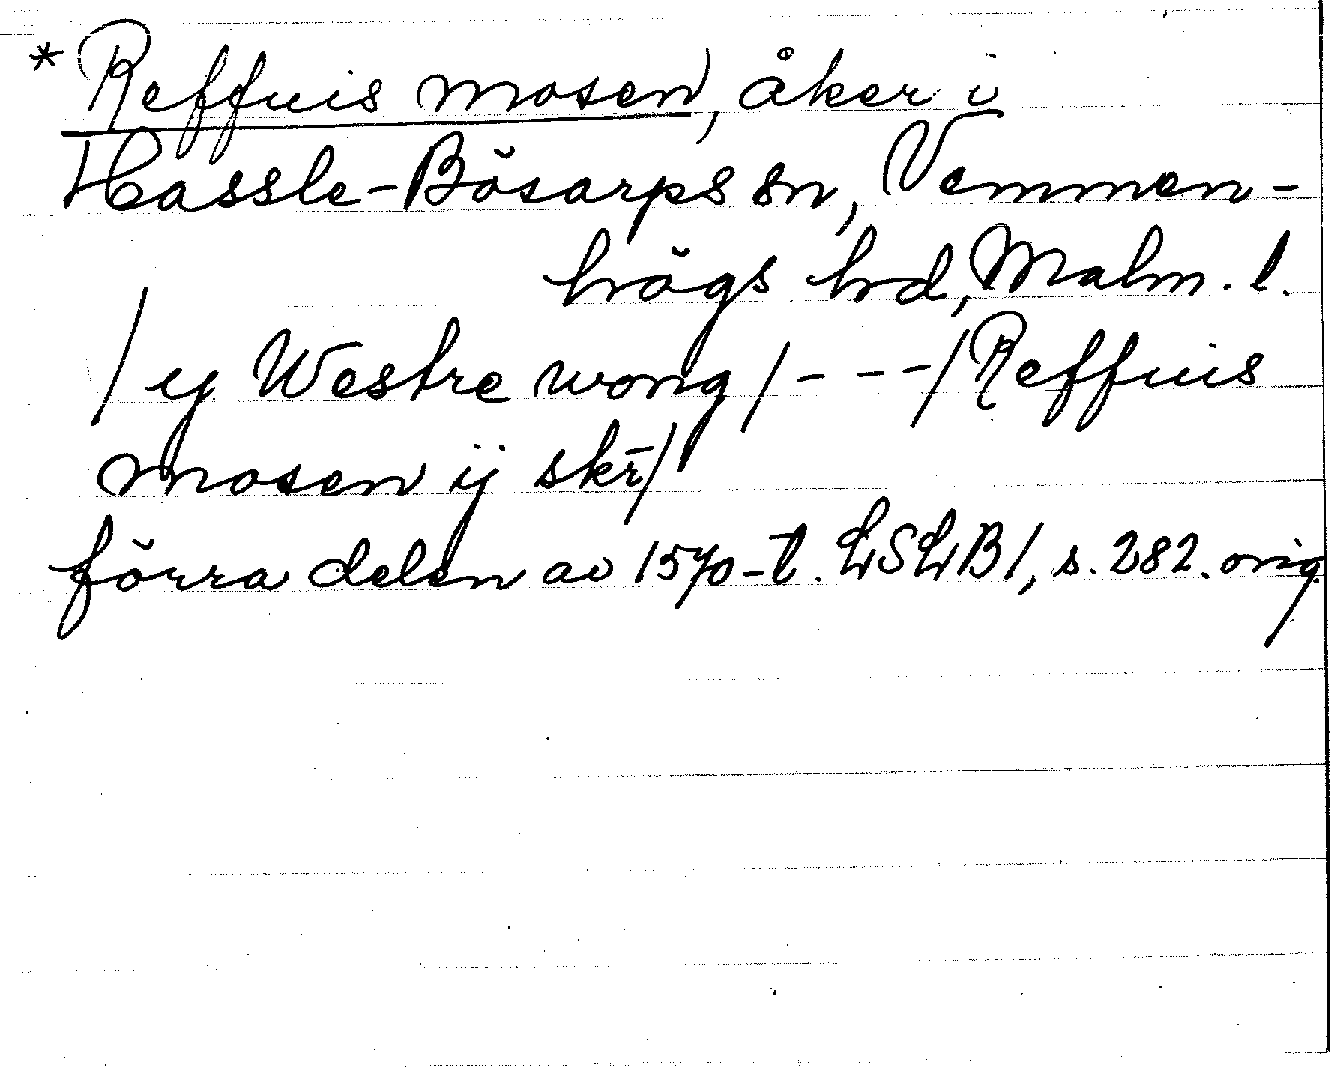 * Reffuis mosen, åker i
Hassle-Bösarps sn, Vemmen-
högs hd, Malm. l.
/ ij Westre wong / - - - / Reffuis
mosen ij skr̄ /
förra delen av 1570-t. LSLB 1, s. 282. orig